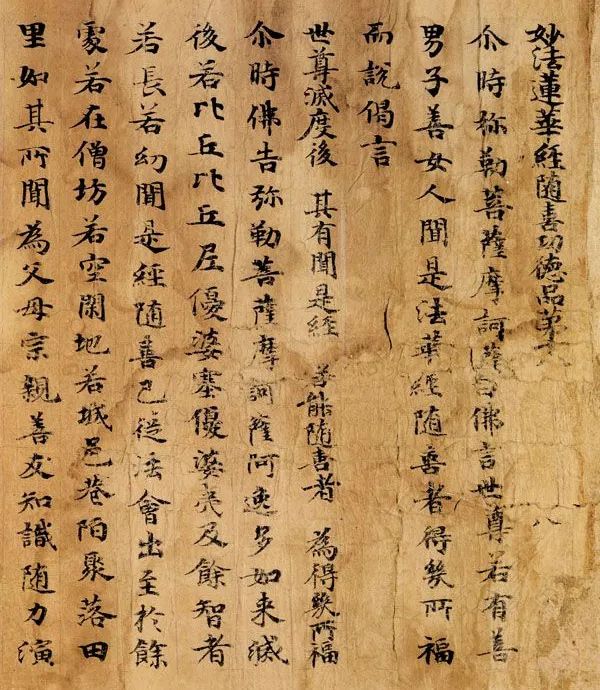 妙法蓮華經随喜功德品第十八
尒時弥勒菩薩摩訶薩白佛言世尊若有善
男子善女人聞是法華經随喜者得幾所福
而說偈言
世尊滅度後 其有聞是經 若能随喜者 為得幾所福
尒時佛告弥勒菩薩摩訶薩阿逸多如来滅
後若比丘比丘尼優婆塞優婆夷及餘智者
若長若幼聞是經随喜已從法會出至於餘
處若在僧坊若空閑地若城邑巷陌聚落田
里如其所聞為父母宗親善友知識随力演